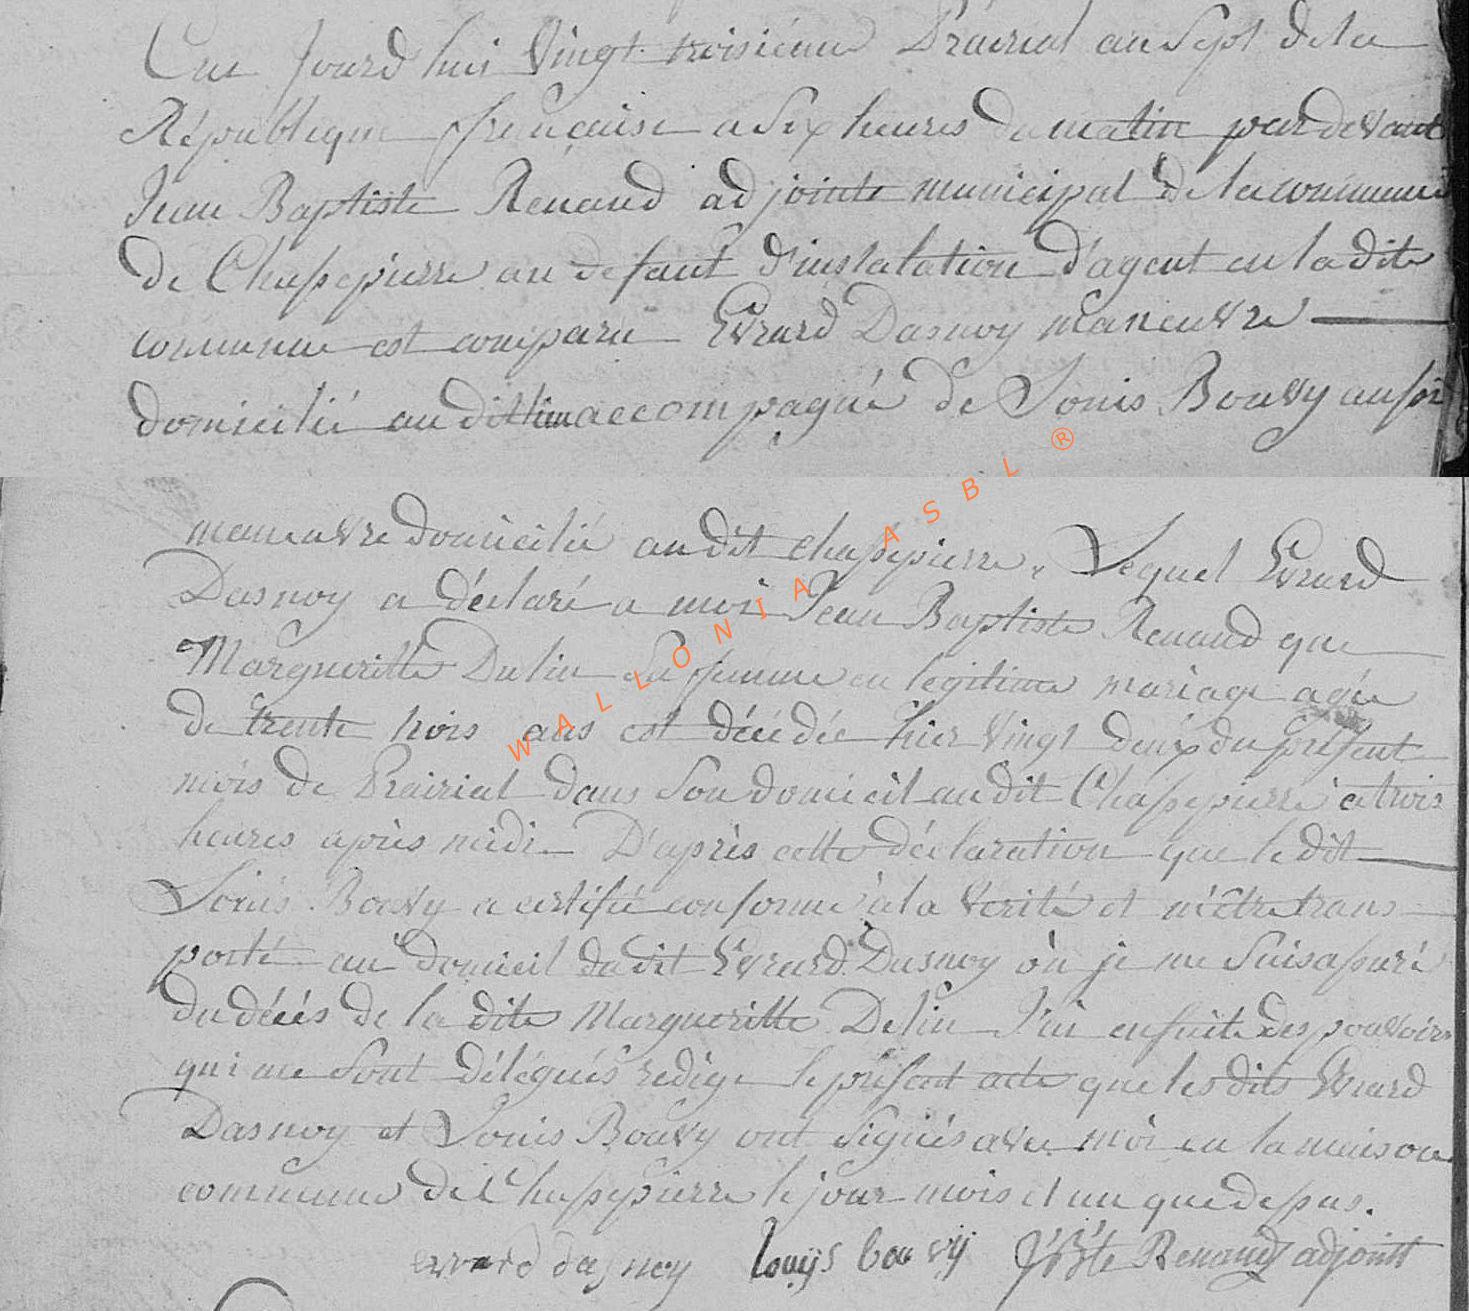 Cue Jourd hui Vingt troisième Prairial an Sept de la
République française a Six heures du matin par devant
Jean Baptiste Renaud adjointe municipal de la commune
de Chassepierre au defaut d'instalation d'agent en la dite
commune est comparu Evrard Dasnoy maneuvre
domicilié au dit lieu accompagné de Louis Bouvy aussi
maneuvre domicilié au dit Chassepierre, Lequel Evrard
Dasnoy a déclaré a moi Jean Baptiste Renaud que
Margueritte Dulin Sa femme en légitime mariage agée
de trente trois ans est décédée hier Vingt deux du présent
mois de Prairial dans Son domicil au dit Chassepierre a trois
heures après midi. D'après cette déclaration que le dit
Louis Bouvy a certifié conforme à la Verité et m'être trans
porté au domicil du dit Evrard Dasnoy où je me Suis assuré
du décés de la dite Margueritte Delin J'ai ensuite des pouvoirs
qui me Sont délégués redigé le présent acte que les dits Evrard
Dasnoy et Louis Bouvy ont Signés avec moi en la maison
commune de Chassepierre le jour mois et an que dessus.
evrard dasnoy louÿs bouvÿ J Bte Renaud adjoint
WALLONIA ASBL ®